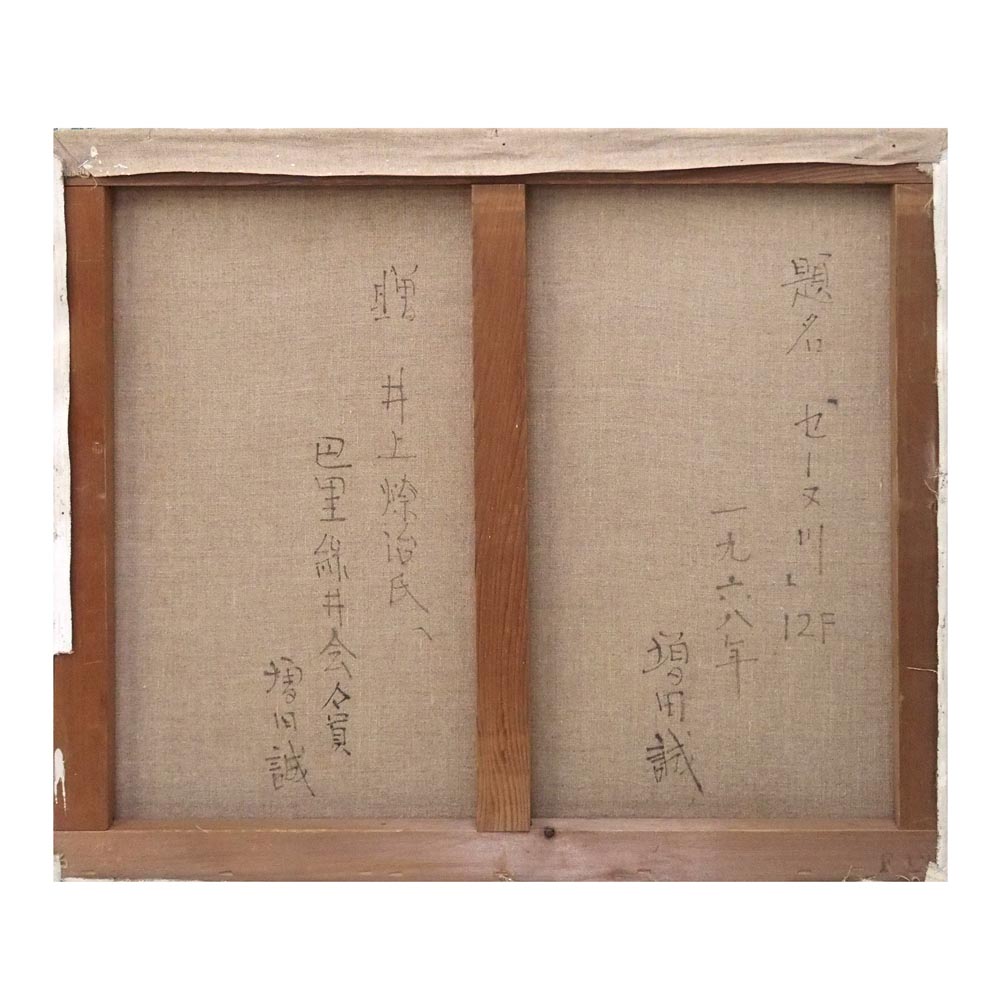 題名 「セーヌ川」 12F
一九六八年
増田誠
贈 井上燎治氏へ
巴里緑井会々員
増田誠